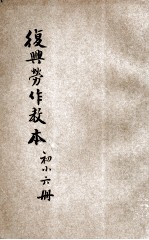 復興勞作教本
初小六冊